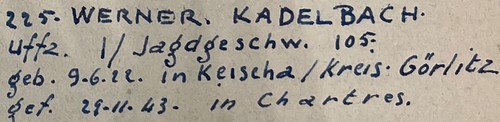 225. WERNER. KADELBACH.
Uffz. 1/ Jagdgeschw. 105.
geb. 9.6.22. in Keischa/Kreis. Görlitz
gef. 29.11.43. in Chartres.